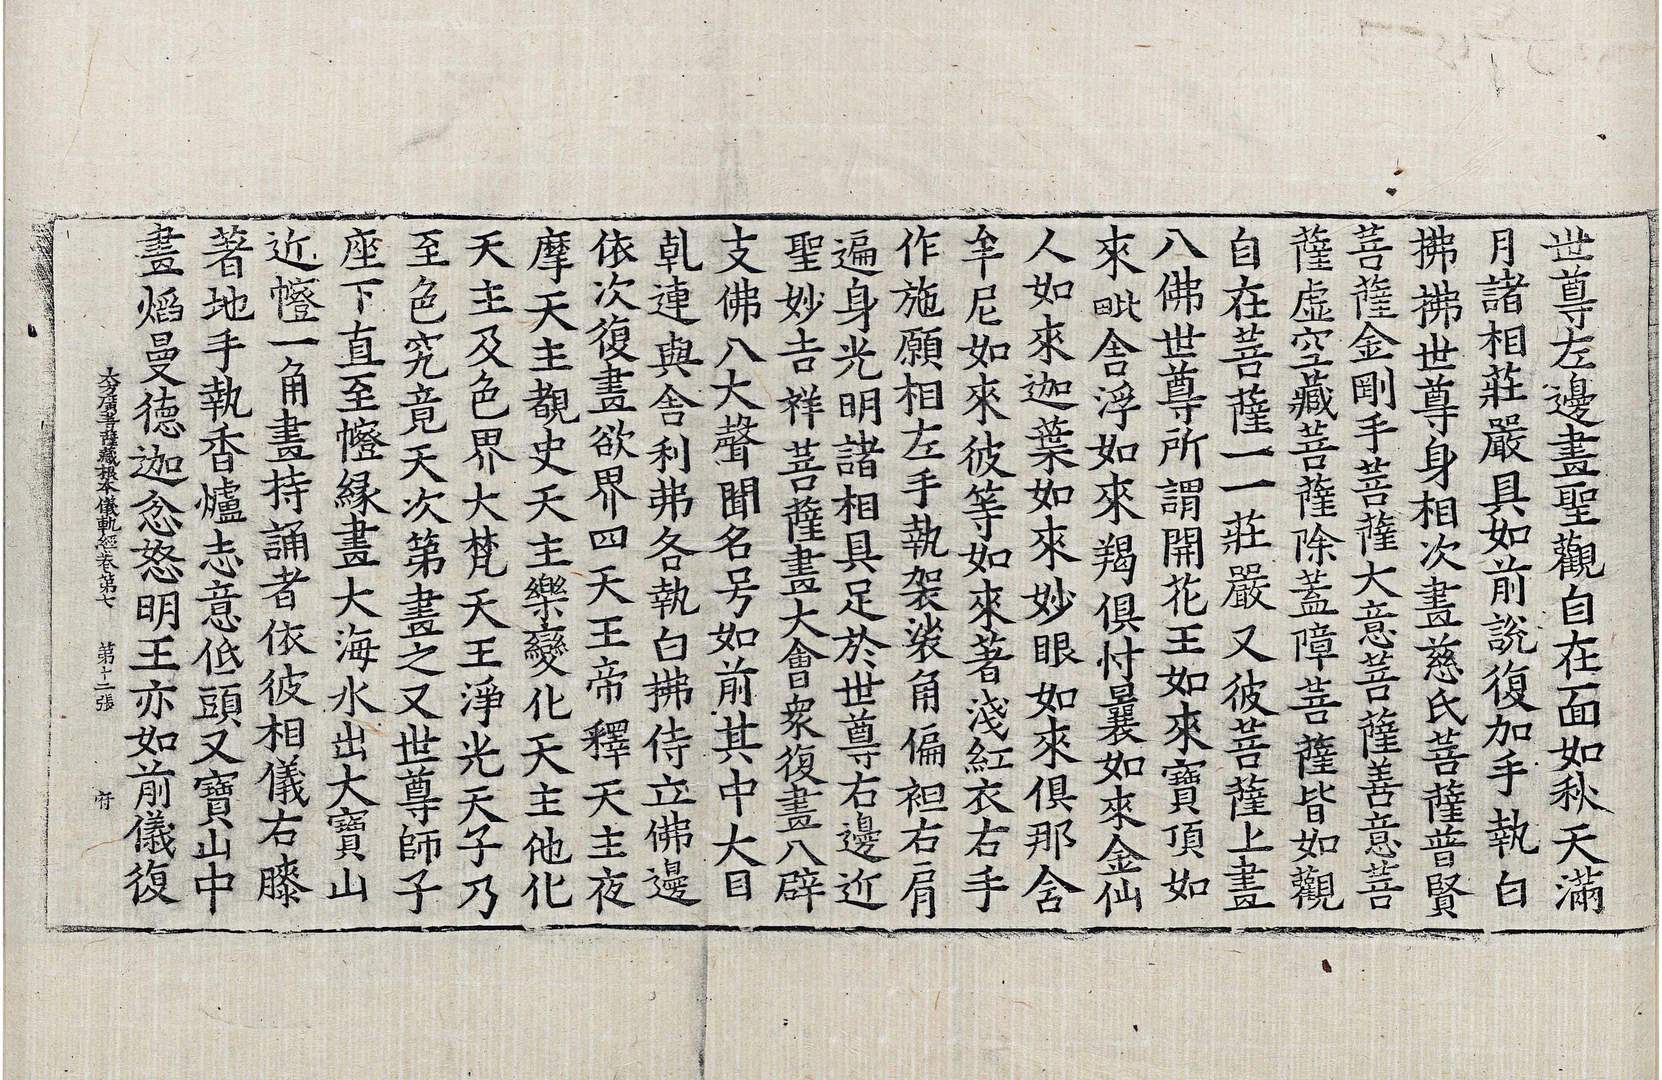 世尊左邊畫聖觀自在面如秋天滿
月諸相莊嚴具如前說復加手執白
拂拂世尊身相次畫慈氏菩薩普賢
菩薩金剛手菩薩大意菩薩善意菩
薩虛空藏菩薩除蓋障菩薩皆如觀
自在菩薩一一莊嚴又彼菩薩上畫
八佛世尊所謂開花王如來寶頂如
來毗舍浮如來羯俱忖曩如來金仙
人如來迦葉如來妙眼如來俱那舍
牟尼如來彼等如來著淺紅衣右手
作施願相左手執袈裟角偏袒右肩
遍身光明諸相具足於世尊右邊近
聖妙吉祥菩薩畫大會衆復畫八辟
支佛八大聲聞名号如前其中大目
乹連與舍利弗各執白拂侍立佛邊
依次復畫欲界四天王帝釋天主夜
摩天主覩史天主樂變化天主他化
天主及色界大梵天王淨光天子乃
至色究竟天次第畫之又世尊師子
座下直至㡧縁畫大海水出大寶山
近㡧一角畫持誦者依彼相儀右膝
著地手執香爐志意低頭又寶山中
畫焰曼德迦忿怒明王亦如前儀復
大方廣菩薩藏根本儀軌經卷第七 第十二張 府